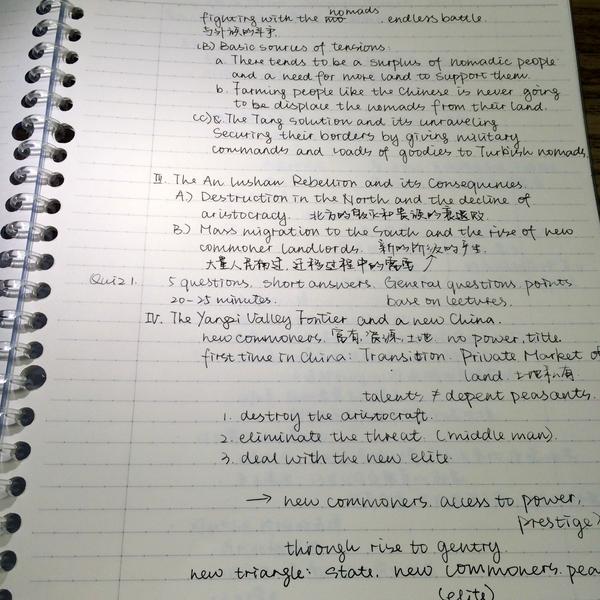 nomads
fighting with the mo . endless battle.
与外族的斗争.
(B) Basic sources of tensions:
a. There tends to be a surplus of nomadic people
and a need for more land to support them.
b. Farming people like the Chinese is never going
to be displace the nomads from their land.
(C) The Tang solution and its unraveling
Securing their borders by giving military
commands and loads of goodies to Turkish nomads.
III. The An Lushan Rebellion and its Consequences.
A) Destruction in the North and the decline of
aristocracy. 北方的 和贵族的衰退败
B) Mass migration to the South and the rise of new
commoner landlords. 新的阶级的产生.
大量人民 过程中的需要
Quiz 1. 5 questions, short answers. General questions, points
20-25 minutes. base on lectures.
IV. The Yangzi Valley Fontier and a new China.
new commoners. 富有, 资源, 土地. no power, title
first time in China: Transition. Private Market of
land. 土地私有.
talents ≠ depent peasants.
1. destroy the aristocraft.
2. eliminate the threat. (middle man).
3. deal with the new elite.
→ new commoners. access to power,
prestige
through rise to gentry.
new triangle: state. new commoners. pea
(elite)